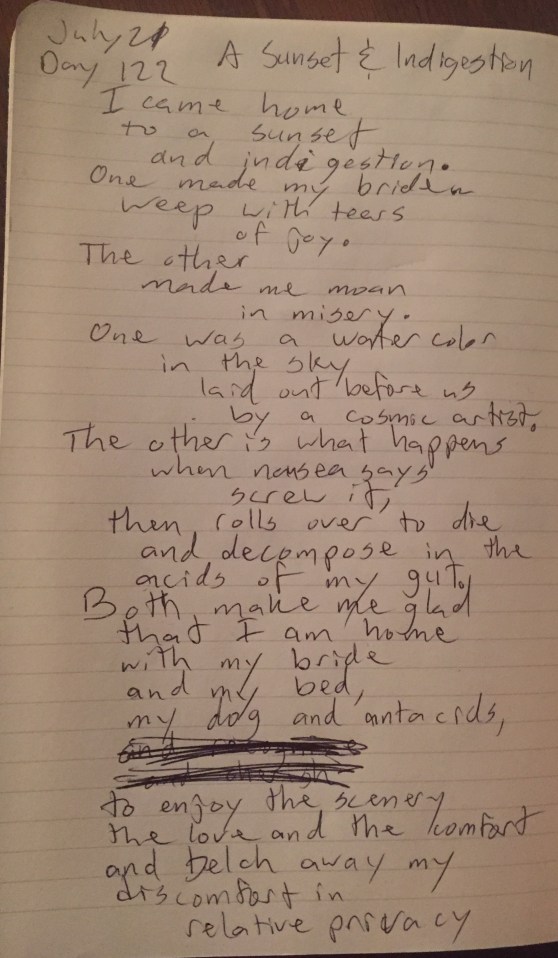 July 21
Day 122
A Sunset & Indigestion
I came home
to a sunset
and indigestion.
One made my bride
weep with tears
of joy.
The other
made me moan
in misery.
One was a watercolor
in the sky
laid out before us
by a cosmic artist.
The other is what happens
when nausea says
screw it,
then rolls over to die
and decompose in the
acids of my gut.
Both make me glad
that I am home
with my bride
and my bed,
my dog and antacids,
to enjoy the scenery
the love and the comfort
and belch away my
discomfort in
relative privacy